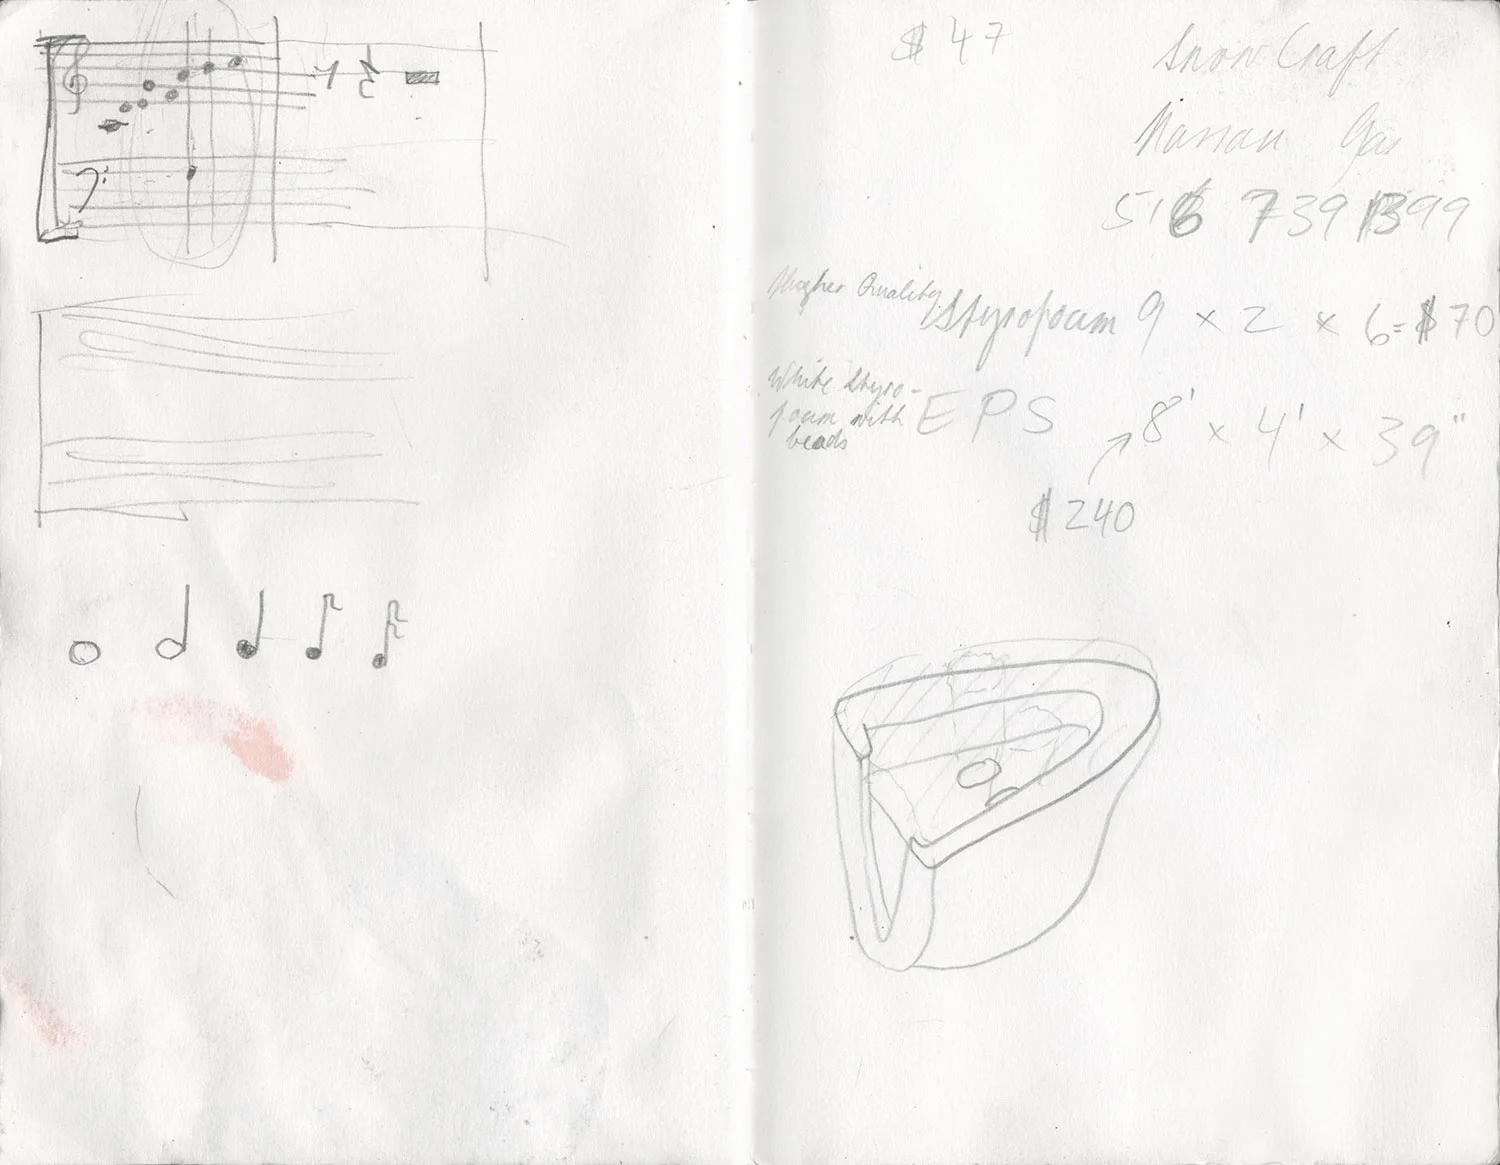 $47
Snow Craft
Nassau Gas
516 739 1399
Higher Quality Styrofoam 9 x 2 x 6 = $70
White Styro-
foam with
beads
EPS 8' x 4' x 39"
$240